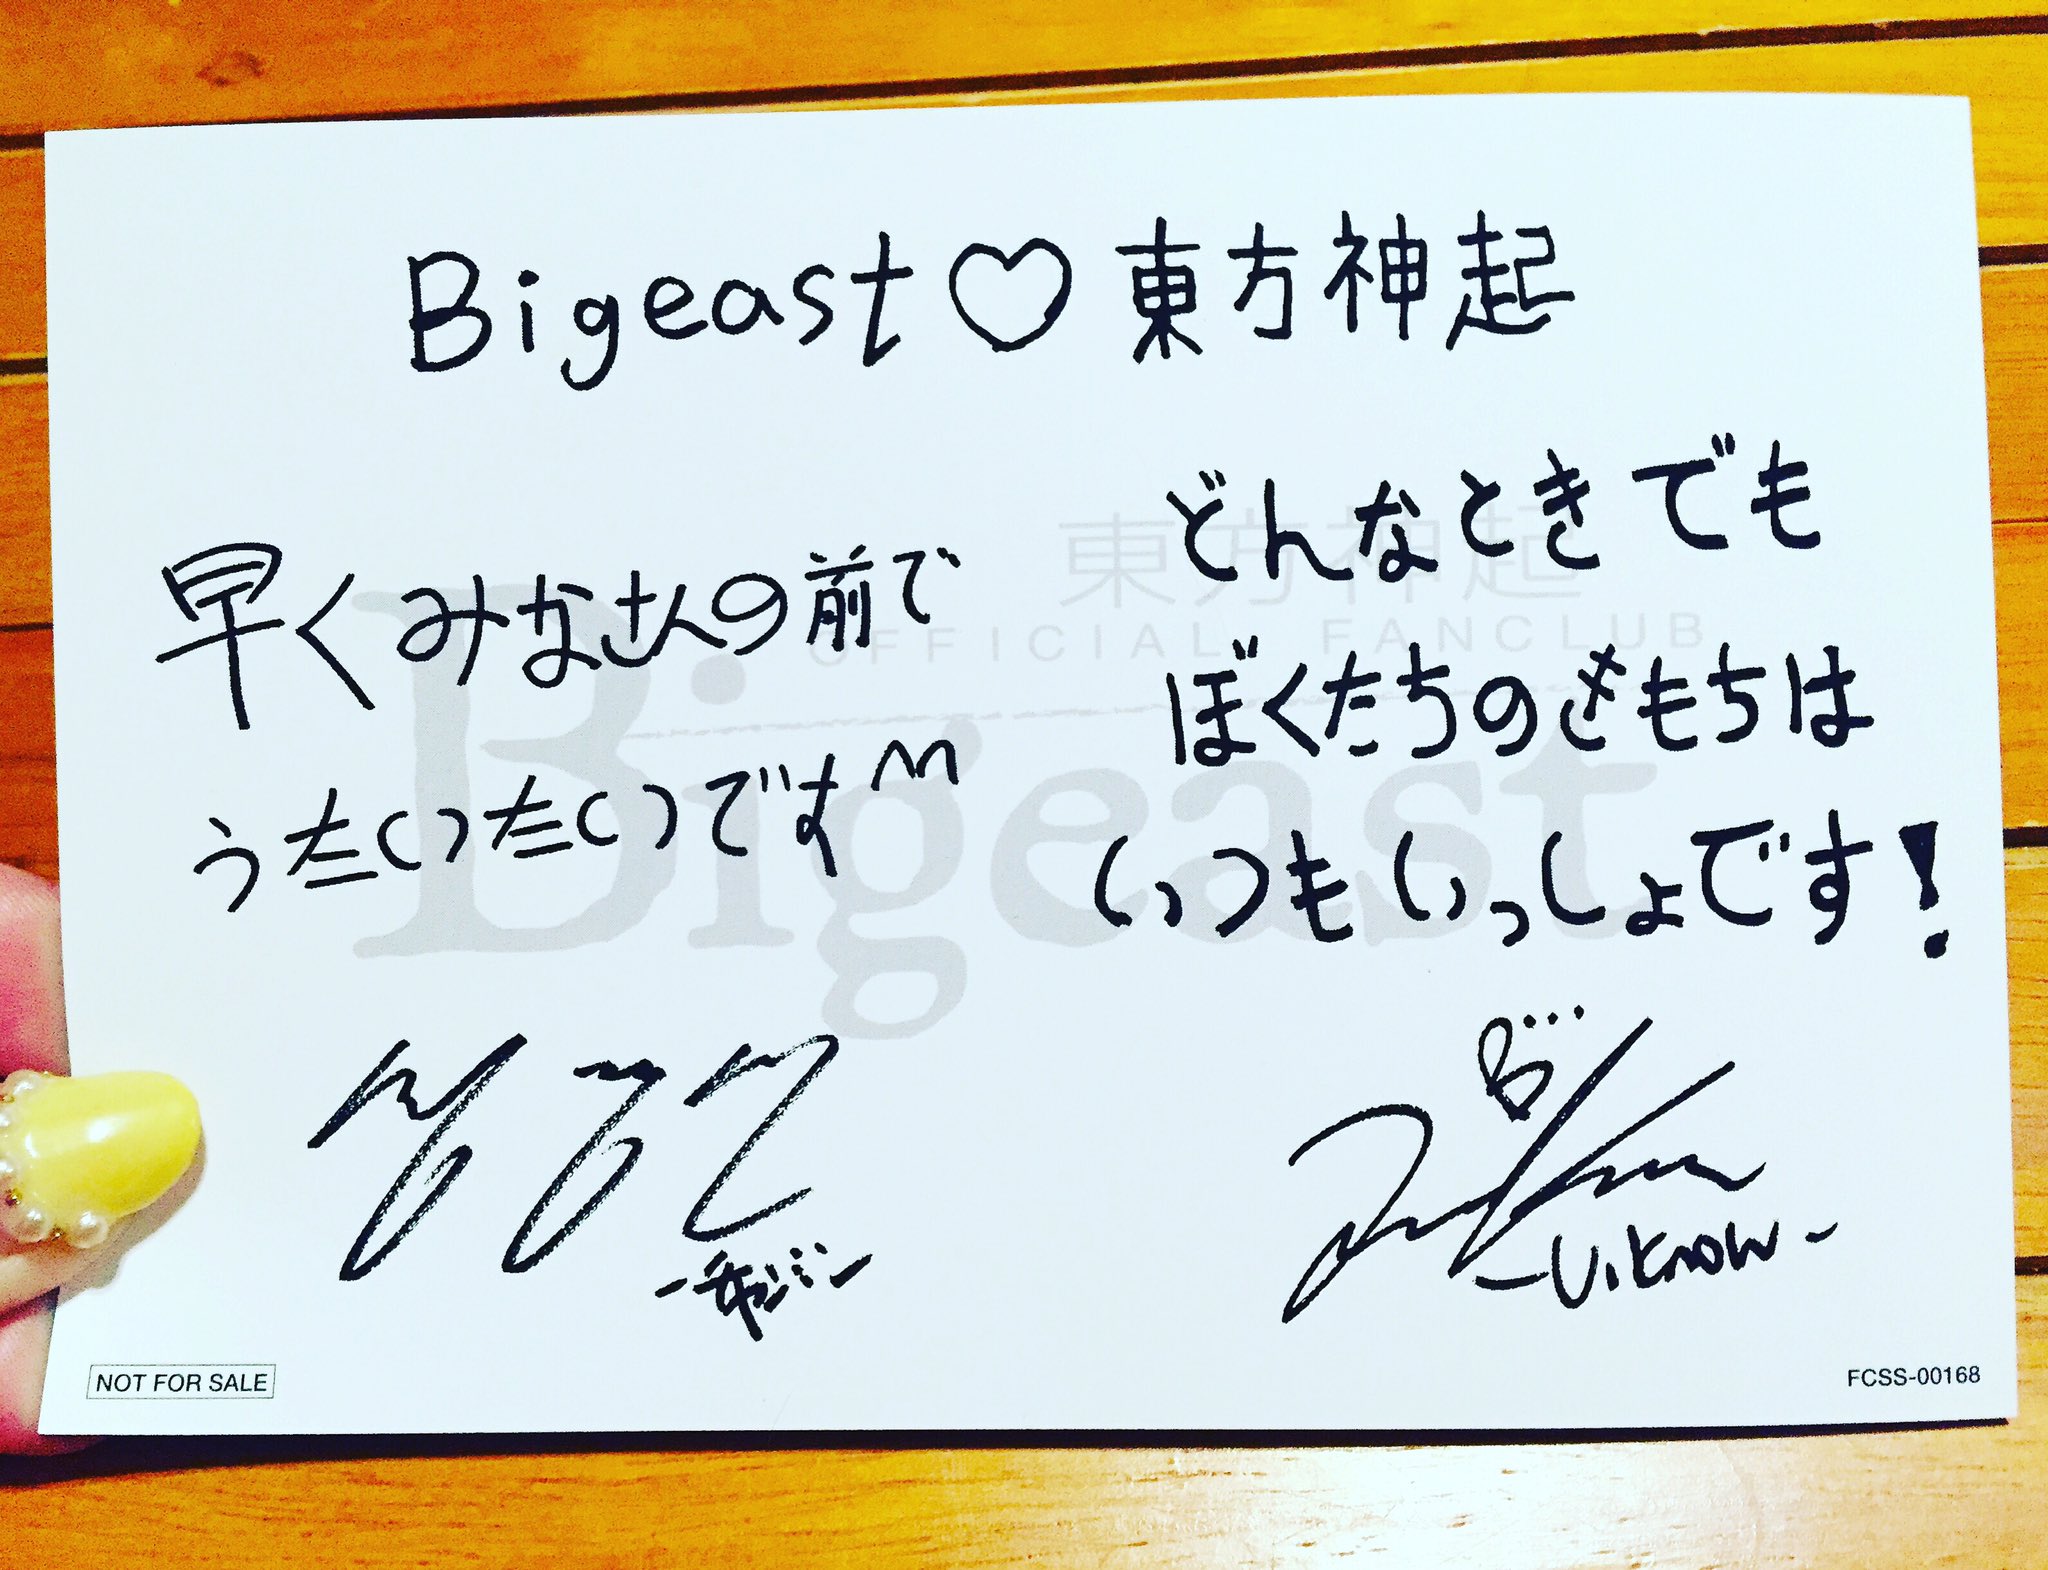 Bigeast♡東方神起
早くみなさんの前で
うたいたいです^^
どんなときでも
ぼくたちのきもちは
いつもいっしょです!
東方神起
OFFICIAL FANCLUB
Bigeast
-U.Know-
NOT FOR SALE
FCSS-00168